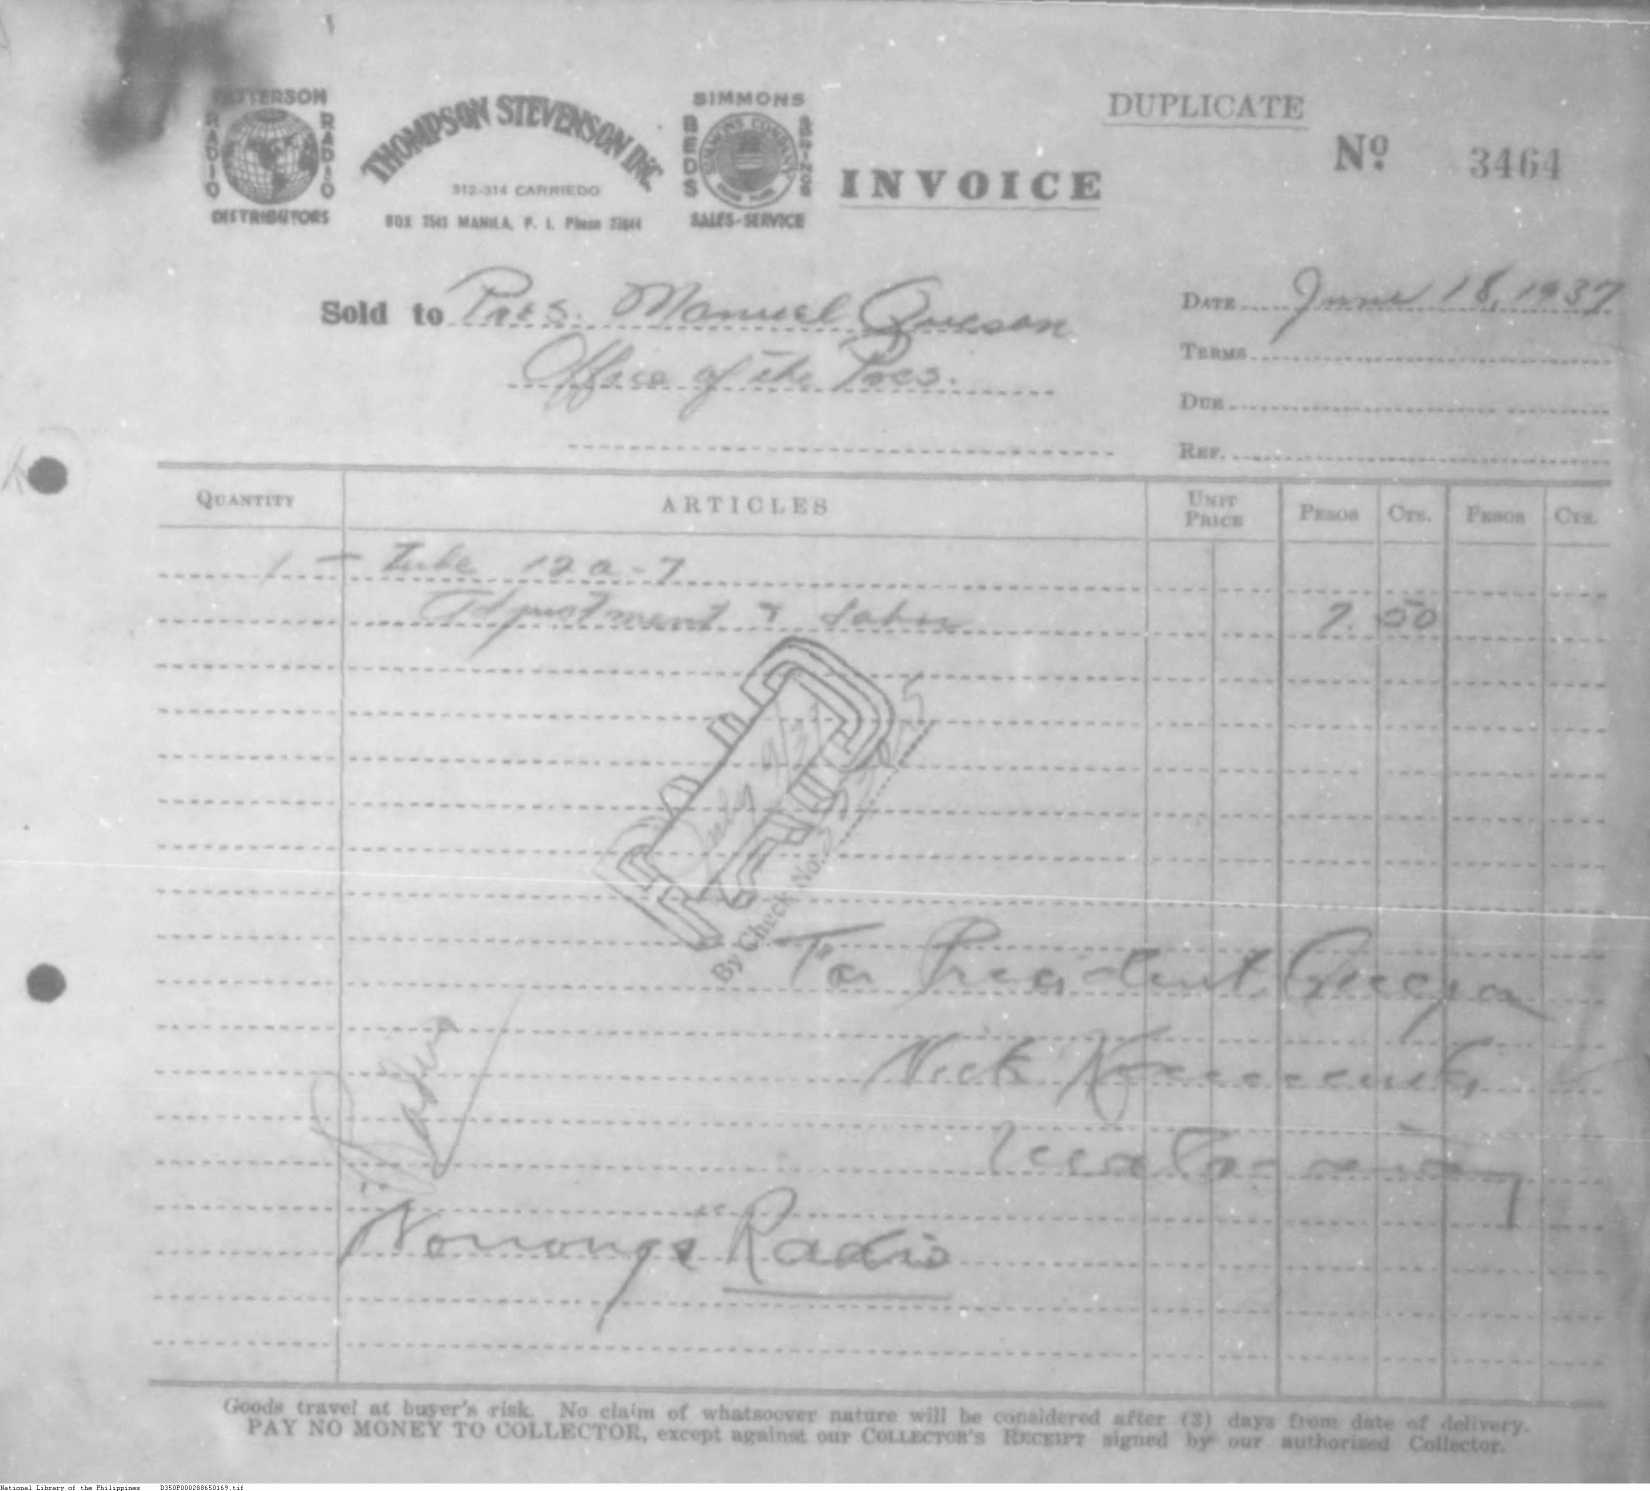 PATTERSON
RADIO
RADIO
DISTRIBUTORS
THOMPSON STEVENSON INC.
312-314 CARRIEDO
BOX 7543 MANILA, P. I. Phone
SIMMONS
BEDS
SPRINGS
SIMMONS COMPANY
SALES-SERVICE
INVOICE
DUPLICATE
Nº 3464
Sold to Pres. Manuel Queson
Office of the Pres.
DATE June 18, 1937
TERMS
DUE
REF.
QUANTITY ARTICLES UNIT PRICE PESOS CTS. PESOS CTS.
1 — Tube 12 a-7
Adjustment & labor 7.50
PAID
By Check No.
For President Quezon
Nick
Nonong's Radio
Goods travel at buyer's risk. No claim of whatsoever nature will be considered after (3) days from date of delivery.
PAY NO MONEY TO COLLECTOR, except against our COLLECTOR'S RECEIPT signed by our authorized Collector.
National Library of the Philippines D350P000288650169.tif